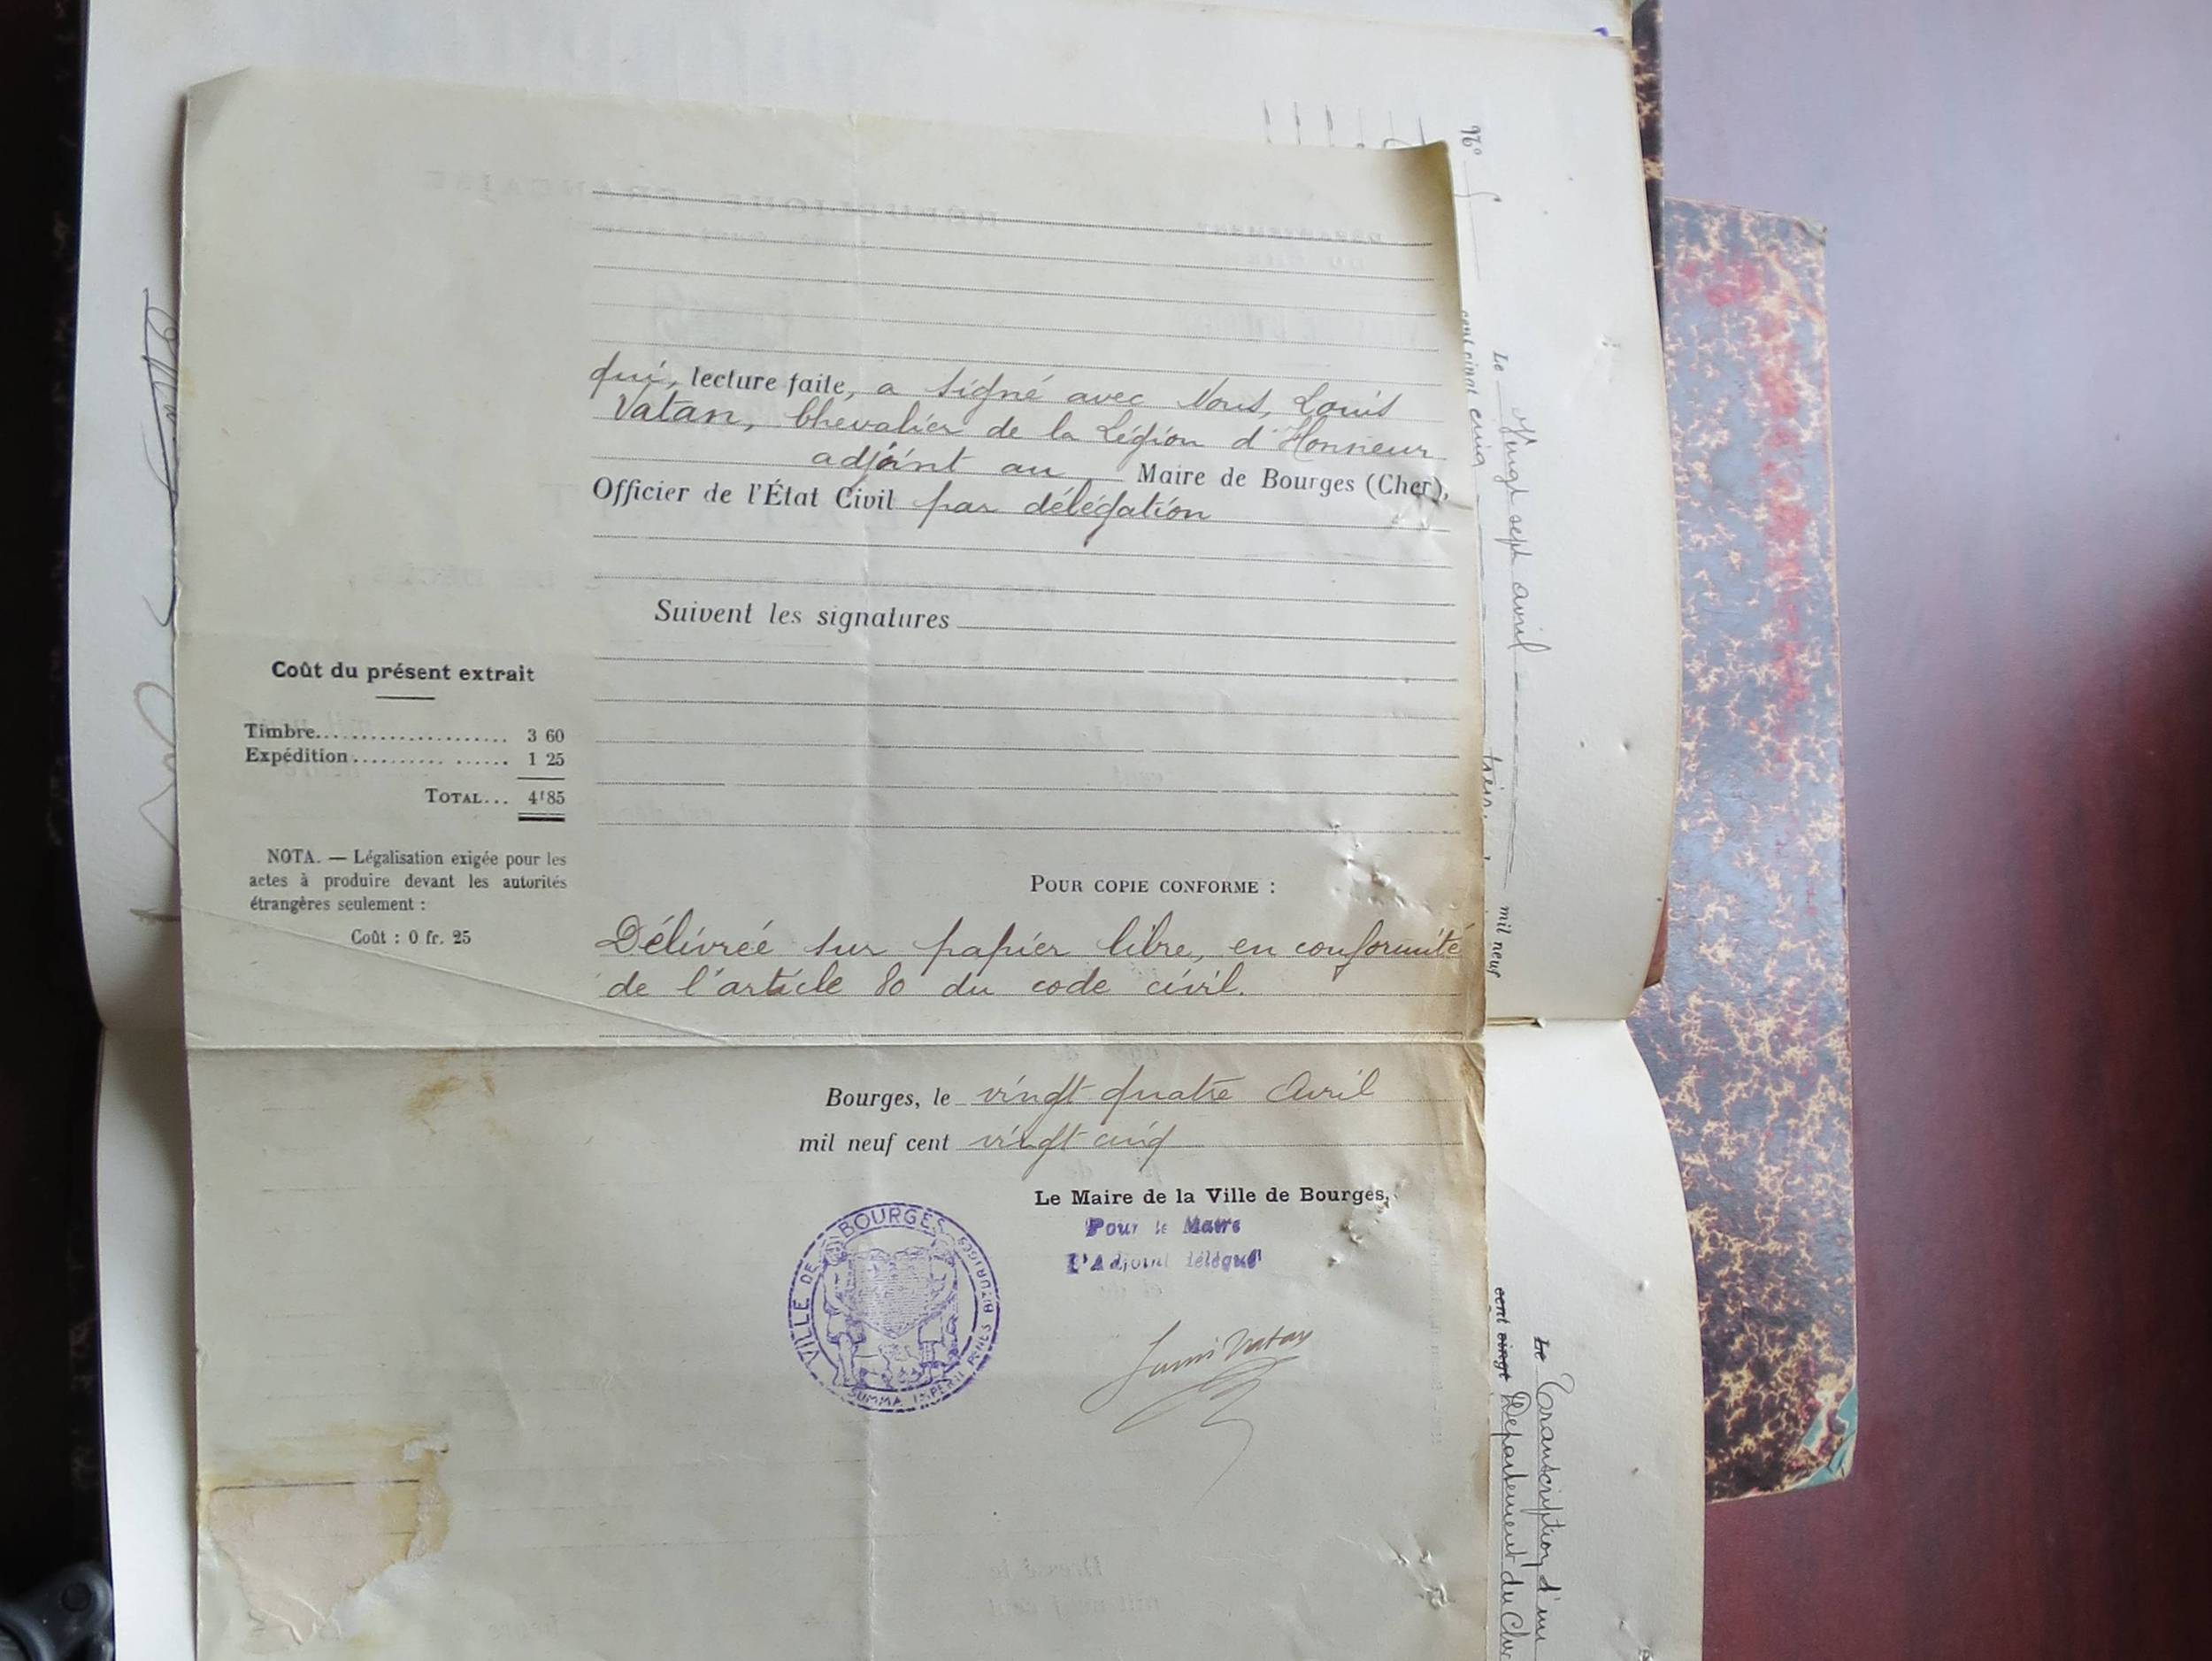 qui, lecture faite, a signé avec Nous, Louis
Vatan, Chevalier de la Légion d'Honneur
adjoint au Maire de Bourges (Cher),
Officier de l'État Civil par délégation
Suivent les signatures
Coût du présent extrait
Timbre..................... 3 60
Expédition.......... ...... 1 25
TOTAL... 4f85
NOTA. — Légalisation exigée pour les
actes à produire devant les autorités
étrangères seulement :
Coût : 0 fr. 25
POUR COPIE CONFORME :
Délivrée sur papier libre, en conformité
de l'article 80 du code civil.
Bourges, le vingt quatre Avril
mil neuf cent vingt cinq
Le Maire de la Ville de Bourges,
Pour le Maire
L'Adjoint délégué
VILLE DE BOURGES
SUMMA IMPERII PENES BITURIGES
Louis Vatan
No
Le Vingt sept avril mil neuf
cent vingt cinq
Le Transcription d'un
cent vingt Département du Cher